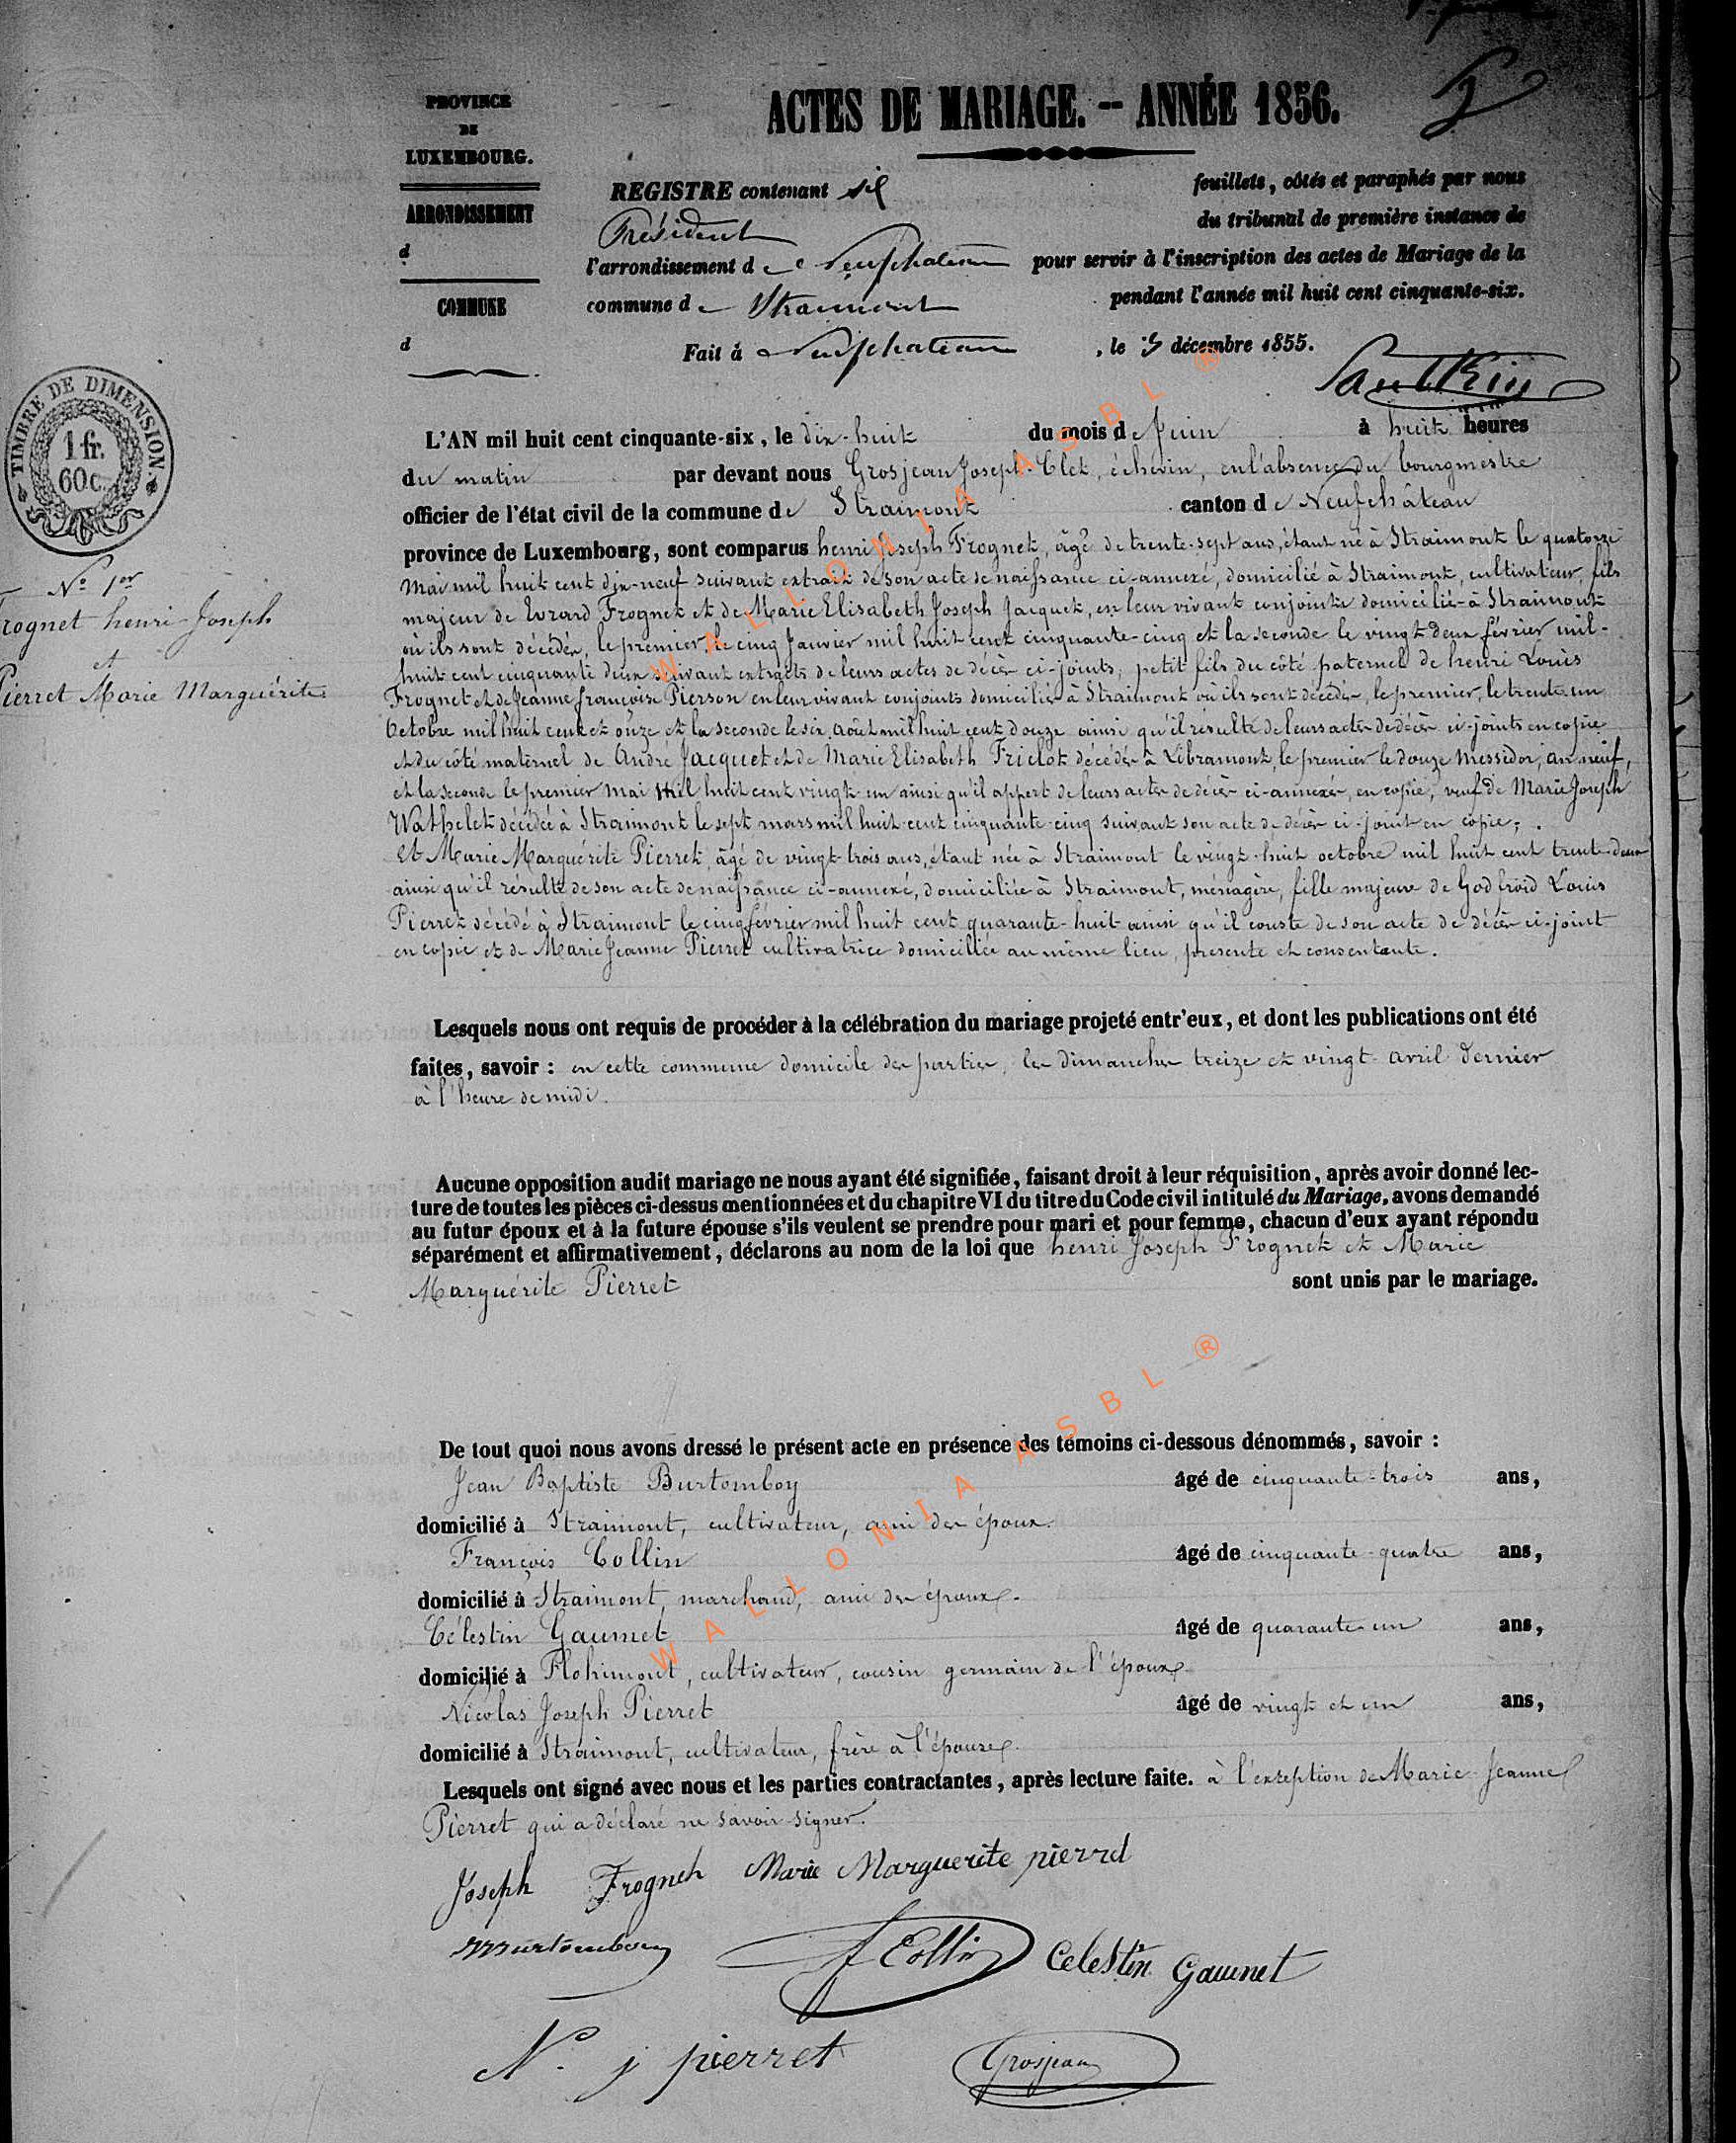 PROVINCE
DE
LUXEMBOURG.
ARRONDISSEMENT
d
COMMUNE
d
ACTES DE MARIAGE. -- ANNÉE 1856.
REGISTRE contenant six feuillets, côtés et paraphés par nous
Président du tribunal de première instance de
l'arrondissement de Neufchateau pour servir à l'inscription des actes de Mariage de la
commune de Straimont pendant l'année mil huit cent cinquante-six.
Fait à Neufchateau, le décembre 1855.
TIMBRE DE DIMENSION.
1 fr.
60 c.
N° 1er
Frognet henri-Joseph
et
Pierret Marie Marguérite
L'AN mil huit cent cinquante-six, le dix-huit du mois de Juin à huit heures
du matin par devant nous Grosjean Joseph-Clet, échevin, en l'absence du bourgmestre
officier de l'état civil de la commune de Straimont canton de Neufchâteau
province de Luxembourg, sont comparus henri Joseph Frognet, âgé de trente-sept ans, étant né à Straimont le quatorze
mai mil huit cent dix-neuf suivant extrait de son acte de naissance ci-annexé, domicilié à Straimont, cultivateur, fils
majeur de Evrard Frognet et de Marie Elisabeth Joseph Jacquet, en leur vivant conjoints domiciliés à Straimont
où ils sont décédés, le premier, le cinq Janvier mil huit cent cinquante-cinq et la seconde le vingt deux février mil-
huit cent cinquante deux suivant extraits de leurs actes de décès ci-joints, petit fils du côté paternel de henri Louis
Frognet et de Jeanne françoise Pierson en leur vivant conjoints domiciliés à Straimont où ils sont décédés, le premier, le trente un
Octobre mil huit cent et onze et la seconde le six août mil huit cent douze ainsi qu'il résulte de leurs actes de décès ci-joints en copie
et du côté maternel de André Jacquet et de Marie Elisabeth Friclot décédés à Libramont, le premier le douze Messidor, an neuf,
et la seconde le premier mai mil huit cent vingt un ainsi qu'il appert de leurs actes de décès ci-annexés, en copie, veuf de Marie Joseph
Wathelet décédée à Straimont le sept mars mil huit cent cinquante-cinq suivant son acte de décès ci-joint en copie;
Et Marie Marguérite Pierret, âgé de vingt-trois ans, étant née à Straimont le vingt-huit octobre mil huit cent trente-deux
ainsi qu'il résulte de son acte de naissance ci-annexé, domiciliée à Straimont, ménagère, fille majeure de Godfroid Louis
Pierret décédé à Straimont le cinq février mil huit cent quarante-huit ainsi qu'il conste de son acte de décès ci-joint
en copie et de Marie Jeanne Pierret cultivatrice domiciliée au même lieu, présente et consentante.
Lesquels nous ont requis de procéder à la célébration du mariage projeté entr'eux, et dont les publications ont été
faites, savoir : en cette commune domicile des parties, les dimanches treize et vingt avril dernier
à l'heure de midi.
Aucune opposition audit mariage ne nous ayant été signifiée, faisant droit à leur réquisition, après avoir donné lec-
ture de toutes les pièces ci-dessus mentionnées et du chapitre VI du titre du Code civil intitulé du Mariage, avons demandé
au futur époux et à la future épouse s'ils veulent se prendre pour mari et pour femme, chacun d'eux ayant répondu
séparément et affirmativement, déclarons au nom de la loi que henri Joseph Frognet et Marie
Marguérite Pierret sont unis par le mariage.
De tout quoi nous avons dressé le présent acte en présence des témoins ci-dessous dénommés, savoir :
Jean Baptiste Burtomboy âgé de cinquante-trois ans,
domicilié à Straimont, cultivateur, ami des époux.
François Collin âgé de cinquante-quatre ans,
domicilié à Straimont, marchand, ami des époux.
Célestin Gaumet âgé de quarante-un ans,
domicilié à Flohimont, cultivateur, cousin germain de l'époux
Nicolas Joseph Pierret âgé de vingt et un ans,
domicilié à Straimont, cultivateur, frère à l'épouse.
Lesquels ont signé avec nous et les parties contractantes, après lecture faite. à l'exception de Marie Jeanne
Pierret qui a déclaré ne savoir signer.
Joseph Frognet Marie Marguerite pierret
Burtomboy f Collin Celestin Gaumet
N. j pierret Grosjean
WALLONIA ASBL ®
WALLONIA ASBL ®